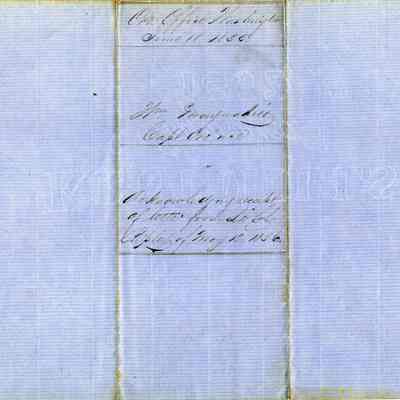 Ord. Office Washington
June 11. 1856.
Wm Maynadier
Capt. Ord.
Acknowledging receipt
of letter from Lt. Col.
of May 12. 1856.